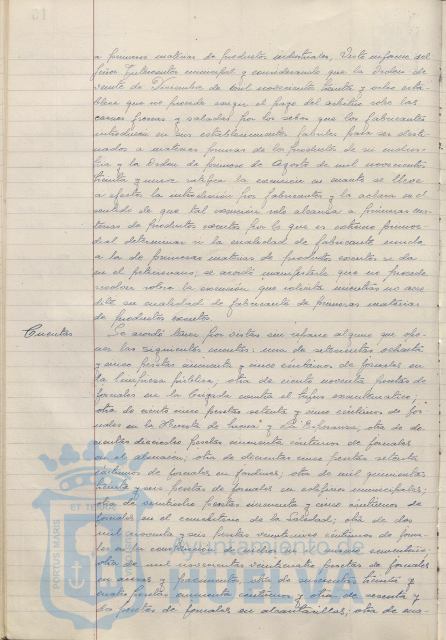 a primeras materias de productos industriales, Visto informe del
Señor Interventor municipal y considerando que la Orden de
veinte de Diciembre de mil novecientos treinta y ocho esta-
blece que no procede exigir el pago del arbitrio sobre las
carnes frescas y saladas por los sebos que los fabricantes
introducen en sus establecimientos fabriles para ser desti-
nados a materias primas de los productos de su indus-
tria y la Orden de primero de Agosto de mil novecientos
treinta y nueve ratifica la exención en cuanto se lleve
a efecto la introducción por fabricantes y la aclara en el
sentido de que tal exención solo alcanza a primeras ma-
terias de productos exentos por lo que es extremo primor-
dial determinar si la cualidad de fabricante unida
a la de primeras materias de productos exentos se da
en el peticionario, se acordó manifestarle que no procede
resolver sobre la exención que solicita mientras no acre-
dite su cualidad de fabricante de primeras materias
de productos exentos.
Cuentas
Se acordó tener por vistas sin reparo alguno
las siguientes cuentas: una de setecientas ochenta
y cinco pesetas cincuenta y cinco céntimos de jornales en
la limpieza pública; otra de ciento noventa pesetas de
jornales en la Brigada contra el tifus exantemático;
otra de ciento cinco pesetas setenta y cinco céntimos de jor-
nales en la Huerta de y "La Esperanza"; otra de
pesetas cincuenta céntimos de jornales
en el almacén; otra de doscientas cinco pesetas setenta
céntimos de jornales en jardines; otra de mil quinientas
treinta y seis pesetas de jornales en edificios municipales;
otra de veintiocho pesetas cincuenta y cinco céntimos de
jornales en el cementerio de la Soledad; otra de dos
mil noventa y seis pesetas veinticinco céntimos de jorna-
les en la construcción de nichos en el mismo cementerio;
otra de mil novecientas veinticuatro pesetas de jornales
en aceras y pavimentos, otra de novecientas treinta y
cuatro pesetas cincuenta céntimos y otra de sesenta y
dos pesetas de jornales en alcantarillas; otra de cua-
PORTUS MARIS
ET TERRAE
Ayuntamiento de
HUELVA